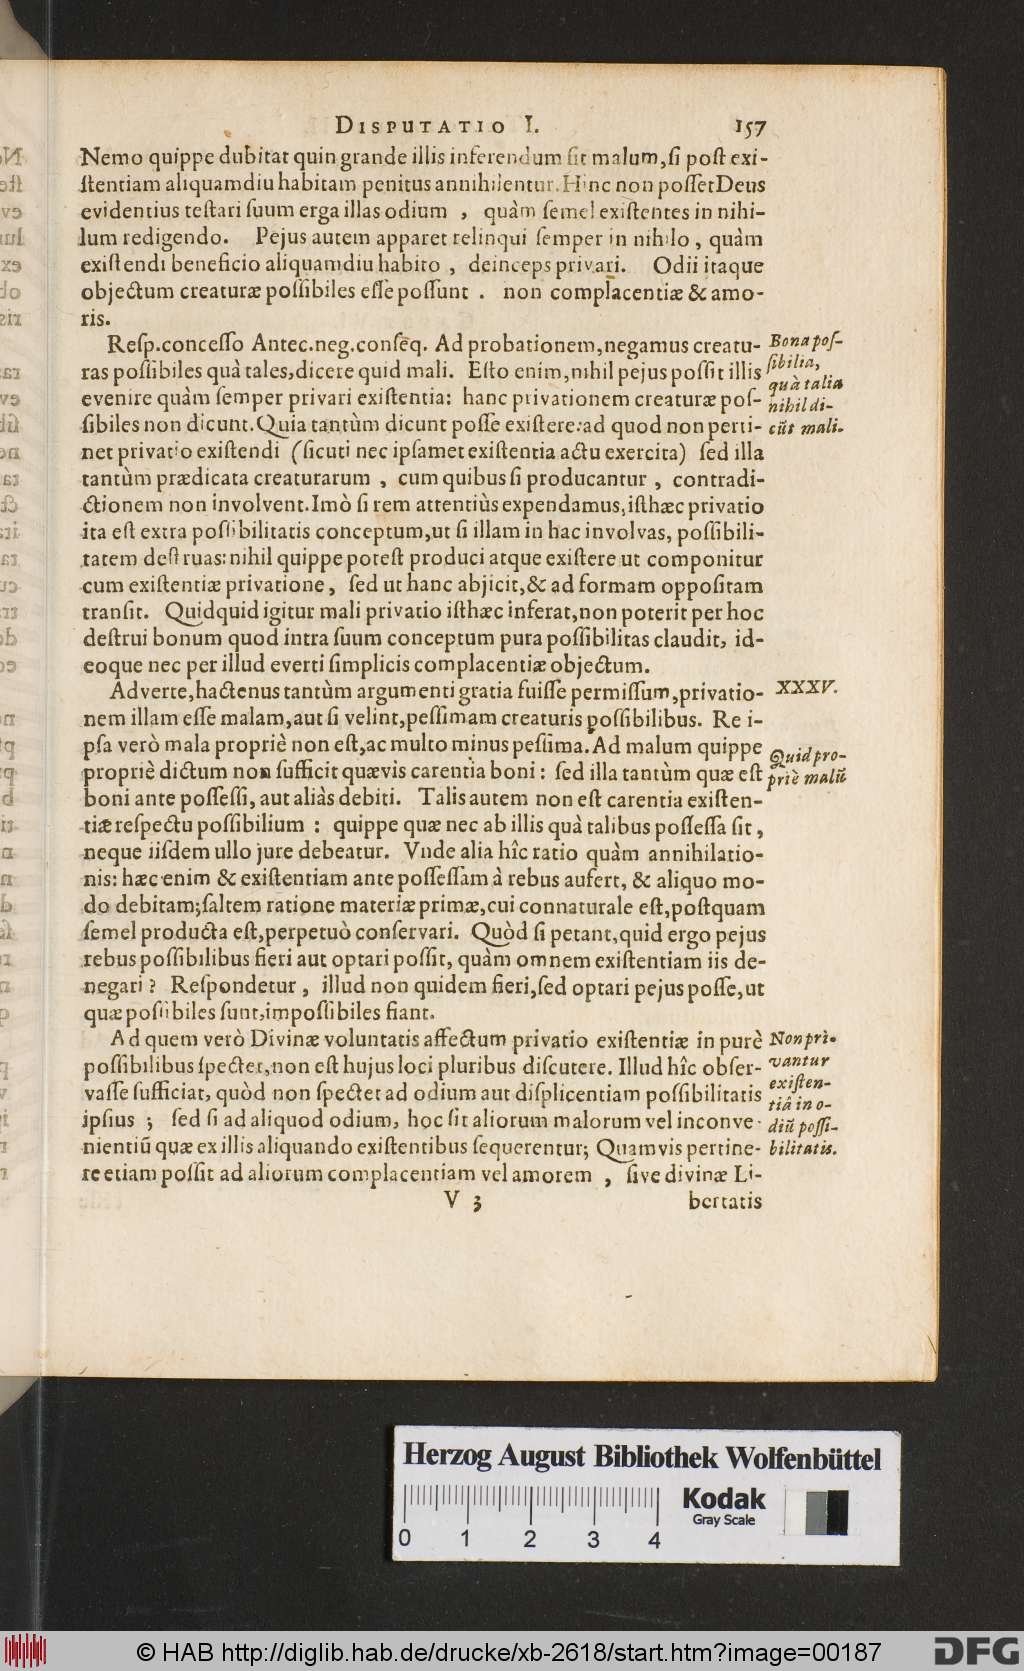 DISPUTATIO I. 157
Nemo quippe dubitat quin grande illis inferendum sit malum, si post exi-
stentiam aliquamdiu habitam penitus annihilentur. Hinc non posset Deus
evidentius testari suum erga illas odium , quàm semel existentes in nihi-
lum redigendo. Pejus autem apparet relinqui semper in nihilo , quàm
existendi beneficio aliquamdiu habito , deinceps privari. Odii itaque
objectum creaturæ possibiles esse possunt . non complacentiæ & amo-
ris.
Resp. concesso Antec. neg. conseq. Ad probationem, negamus creatu-
ras possibiles quà tales, dicere quid mali. Esto enim, nihil pejus possit illis
evenire quàm semper privari existentia: hanc privationem creaturæ pos-
sibiles non dicunt. Quia tantùm dicunt posse existere: ad quod non perti-
net privatio existendi (sicuti nec ipsamet existentia actu exercita) sed illa
tantùm prædicata creaturarum , cum quibus si producantur , contradi-
ctionem non involvent. Imò si rem attentiùs expendamus, isthæc privatio
ita est extra possibilitatis conceptum, ut si illam in hac involvas, possibili-
tatem destruas: nihil quippe potest produci atque existere ut componitur
cum existentiæ privatione , sed ut hanc abjicit, & ad formam oppositam
transit. Quidquid igitur mali privatio isthæc inferat, non poterit per hoc
destrui bonum quod intra suum conceptum pura possibilitas claudit, id-
eoque nec per illud everti simplicis complacentiæ objectum.
Bona pos-
sibilia,
quà talia
nihil di-
cũt mali.
Adverte, hactenus tantùm argumenti gratia fuisse permissum, privatio-
nem illam esse malam, aut si velint, pessimam creaturis possibilibus. Re i-
psa verò mala propriè non est, ac multo minus pessima. Ad malum quippe
propriè dictum non sufficit quævis carentia boni : sed illa tantùm quæ est
boni ante possessi, aut aliàs debiti. Talis autem non est carentia existen-
tiæ respectu possibilium : quippe quæ nec ab illis quà talibus possessa sit ,
neque iisdem ullo jure debeatur. Vnde alia hîc ratio quàm annihilatio-
nis: hæc enim & existentiam ante possessam à rebus aufert, & aliquo mo-
do debitam; saltem ratione materiæ primæ, cui connaturale est, postquam
semel producta est, perpetuò conservari. Quòd si petant, quid ergo pejus
rebus possibilibus fieri aut optari possit, quàm omnem existentiam iis de-
negari ? Respondetur , illud non quidem fieri, sed optari pejus posse, ut
quæ possibiles sunt, impossibiles fiant.
XXXV.
Quid pro-
priè malũ
Ad quem verò Divinæ voluntatis affectum privatio existentiæ in purè
possibilibus spectet, non est hujus loci pluribus discutere. Illud hîc obser-
vasse sufficiat, quòd non spectet ad odium aut displicentiam possibilitatis
ipsius ; sed si ad aliquod odium, hoc sit aliorum malorum vel inconve-
nientiũ quæ ex illis aliquando existentibus sequerentur; Quamvis pertine-
re etiam possit ad aliorum complacentiam vel amorem , sive divinæ Li-
Non pri-
vantur
existen-
tiâ in o-
diũ possi-
bilitatis.
V 3 bertatis
Herzog August Bibliothek Wolfenbüttel
Kodak
Gray Scale
0 1 2 3 4
© HAB http://diglib.hab.de/drucke/xb-2618/start.htm?image=00187
DFG